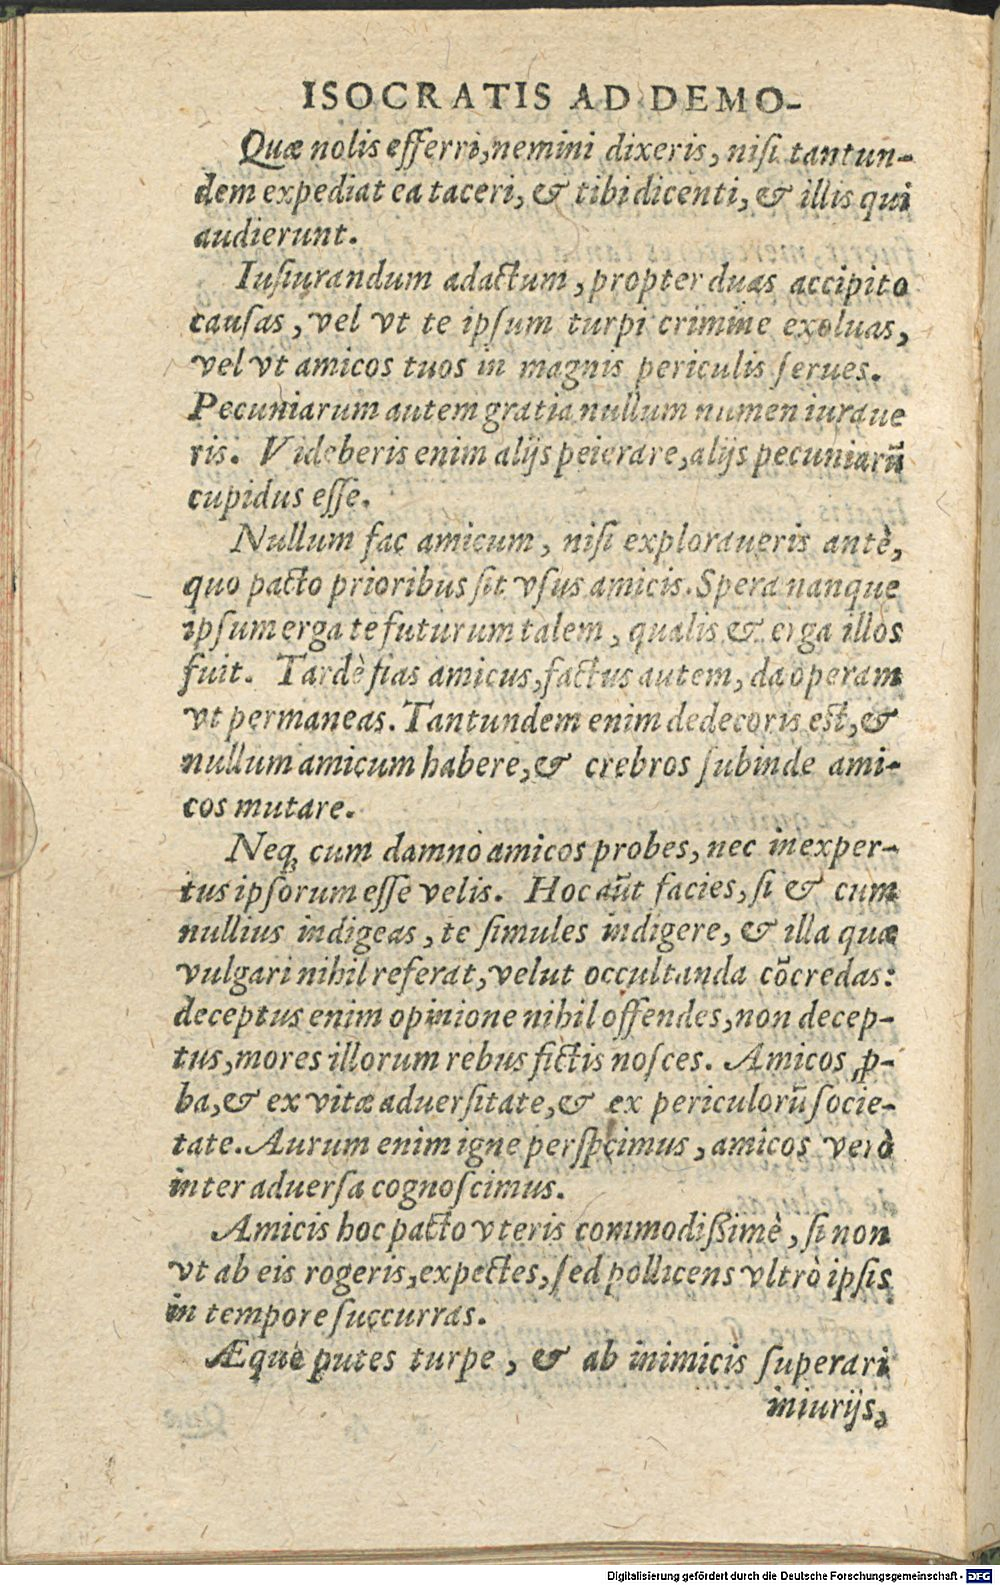 ISOCRATIS AD DEMO-
Quæ nolis efferri, nemini dixeris, nisi tantun-
dem expediat ea taceri, & tibi dicenti, & illis qui
audierunt.
Iusiurandum adactum, propter duas accipito
causas, vel vt te ipsum turpi crimine exoluas,
vel vt amicos tuos in magnis periculis serues.
Pecuniarum autem gratia nullum numen iuraue
ris. Videberis enim alijs peierare, alijs pecuniarū
cupidus esse.
Nullum fac amicum, nisi exploraueris antè,
quo pacto prioribus sit vsus amicis. Spera nanque
ipsum erga te futurum talem, qualis & erga illos
fuit. Tardè fias amicus, factus autem, da operam
vt permaneas. Tantundem enim dedecoris est, &
nullum amicum habere, & crebros subinde ami-
cos mutare.
Neq; cum damno amicos probes, nec inexper-
tus ipsorum esse velis. Hoc aūt facies, si & cum
nullius indigeas, te simules indigere, & illa quæ
vulgari nihil referat, velut occultanda cōcredas:
deceptus enim opinione nihil offendes, non decep-
tus, mores illorum rebus fictis nosces. Amicos ꝓ-
ba, & ex vitæ aduersitate, & ex periculorū socie-
tate. Aurum enim igne perspicimus, amicos verò
inter aduersa cognoscimus.
Amicis hoc pacto vteris commodißimè, si non
vt ab eis rogeris, expectes, sed pollicens vltrò ipsis
in tempore succurras.
Æquè putes turpe, & ab inimicis superari
iniurijs,
Digitalisierung gefördert durch die Deutsche Forschungsgemeinschaft - DFG